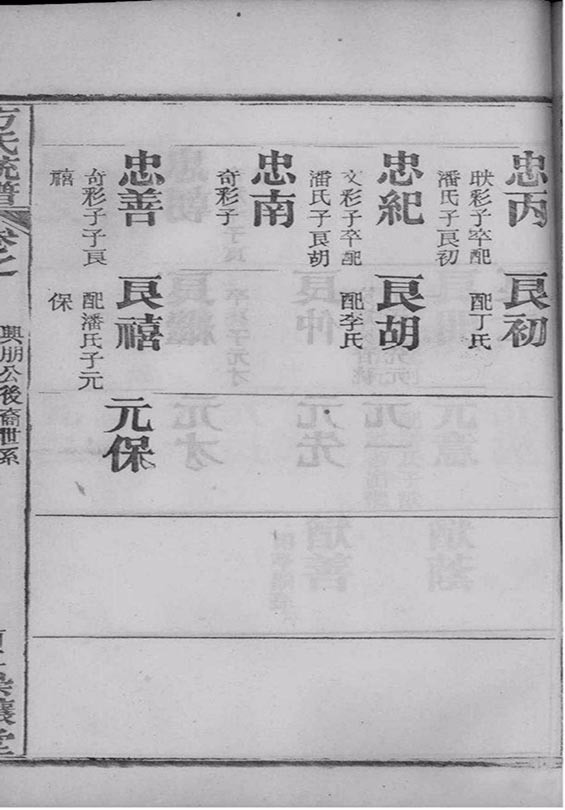 忠丙
映彩子卒配
潘氏子良初
忠紀
文彩子卒配
潘氏子良胡
忠南
奇彩子
忠善
奇彩子子良
禧
良初
配丁氏
良胡
配李氏
良禧
配潘氏子元
保
元保
方氏統譜
卷之
興朋公後裔世系
堂